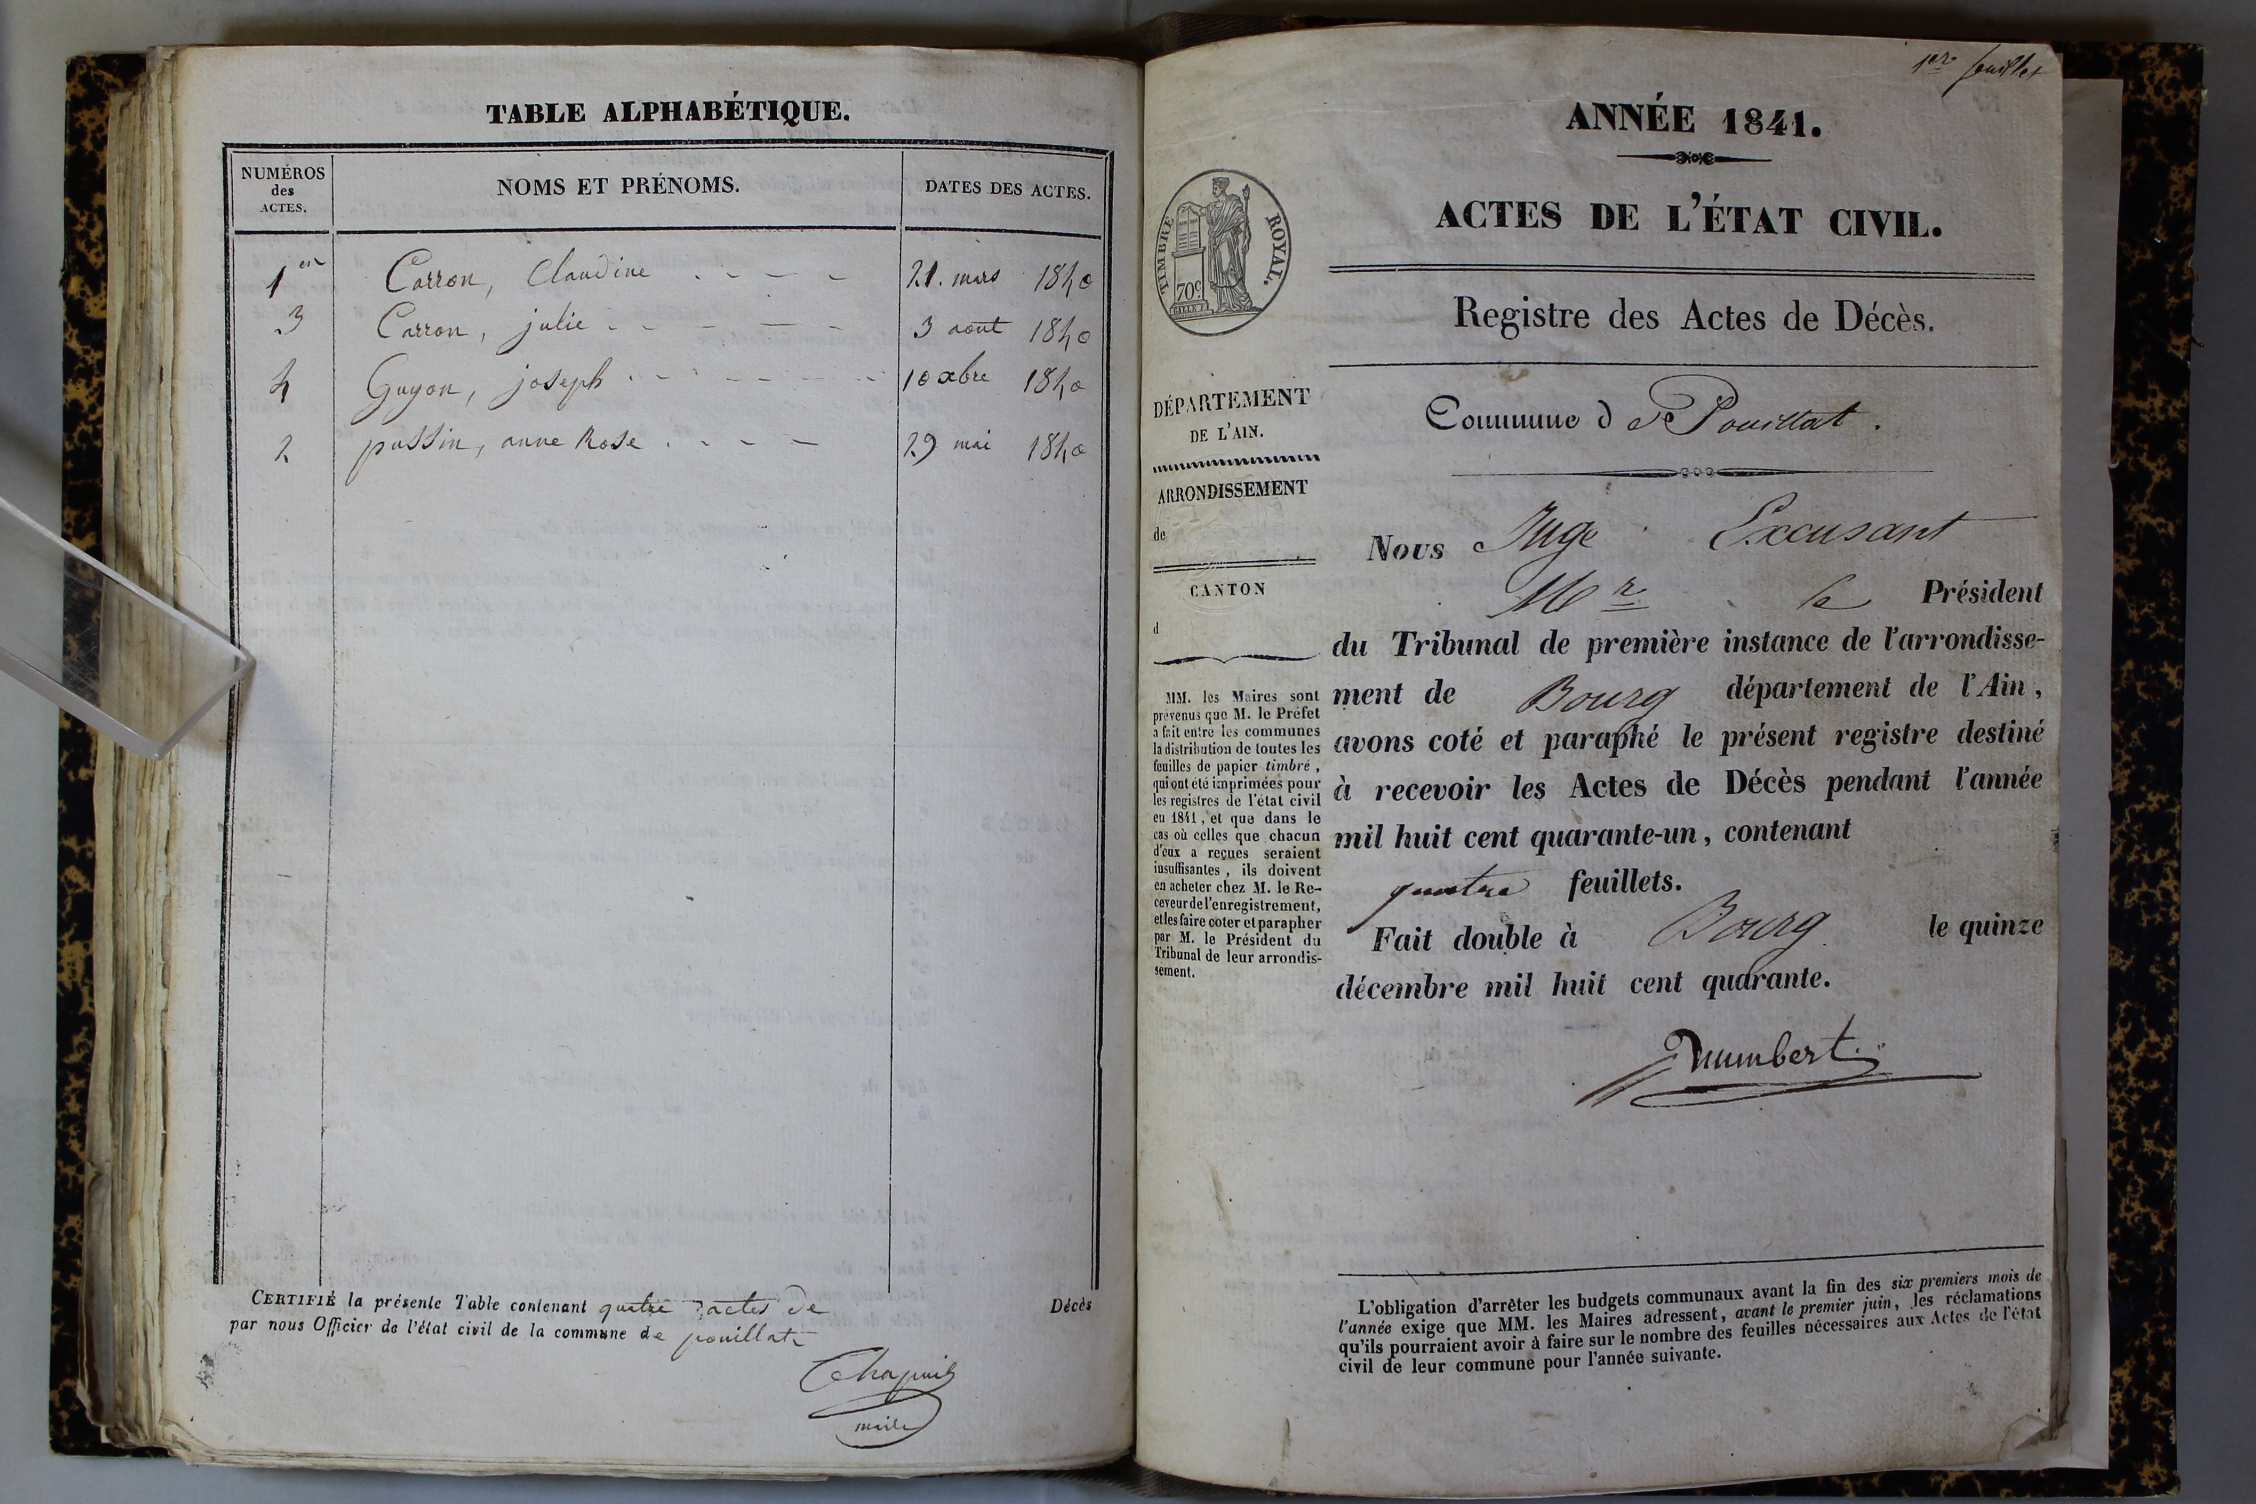 TABLE ALPHABÉTIQUE.
NUMÉROS des ACTES. NOMS ET PRÉNOMS. DATES DES ACTES.
1er Carron, Claudine 21. mars 1840
3 Carron, julie 3 aout 1840
4 Guyon, joseph 10 xbre 1840
2 pussin, anne Rose 29 mai 1840
CERTIFIÉ la présente Table contenant quatre actes de Décès
par nous Officier de l'état civil de la commune de pouillat
Chapuis
maire
1er feuillet
ANNÉE 1841.
ACTES DE L'ÉTAT CIVIL.
TIMBRE ROYAL.
70c.
Registre des Actes de Décès.
DÉPARTEMENT
DE L'AIN.
ARRONDISSEMENT
de
CANTON
d
MM. les Maires sont
prévenus que M. le Préfet
a fait entre les communes
la distribution de toutes les
feuilles de papier timbré,
qui ont été imprimées pour
les registres de l'état civil
en 1841, et que dans le
cas où celles que chacun
d'eux a reçues seraient
insuffisantes, ils doivent
en acheter chez M. le Re-
ceveur de l'enregistrement,
et les faire coter et parapher
par M. le Président du
Tribunal de leur arrondis-
sement.
Commune d de Pouillat.
Nous Juge Excusant
Mr. le Président
du Tribunal de première instance de l'arrondisse-
ment de Bourg département de l'Ain,
avons coté et paraphé le présent registre destiné
à recevoir les Actes de Décès pendant l'année
mil huit cent quarante-un, contenant
quatre feuillets.
Fait double à Bourg le quinze
décembre mil huit cent quarante.
L'obligation d'arrêter les budgets communaux avant la fin des six premiers mois de
l'année exige que MM. les Maires adressent, avant le premier juin, les réclamations
qu'ils pourraient avoir à faire sur le nombre des feuilles nécessaires aux Actes de l'état
civil de leur commune pour l'année suivante.